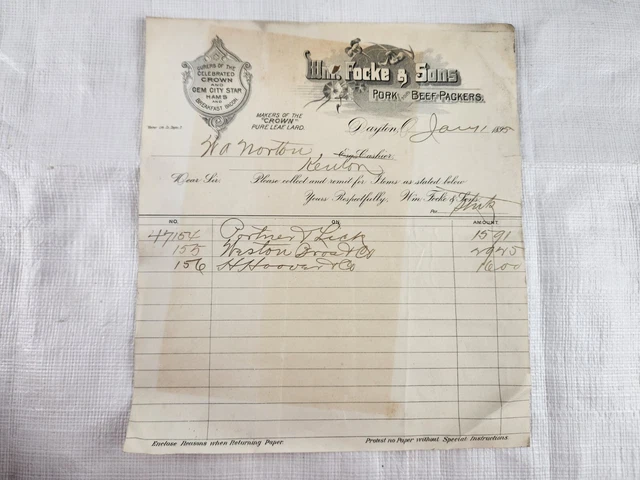 CURERS OF THE
CELEBRATED
CROWN
AND
GEM CITY STAR
HAMS
AND
BREAKFAST BACON.
Wm. Focke & Sons
PORK AND BEEF PACKERS.
MAKERS OF THE
"CROWN"
PURE LEAF LARD.
Dayton, O. Jan 11 1895
W A Norton Esq. Cashier
Kenton
Dear Sir: Please collect and remit for Items as stated below
Yours Respectfully, Wm. Focke & Sons.
Per
NO. ON AMOUNT
47154 Portner & Lick 1591
155 Weston Bros & Co 2945
156 H Hoover & Co 1600
Enclose Reasons when Returning Paper. Protest no Paper without Special Instructions.